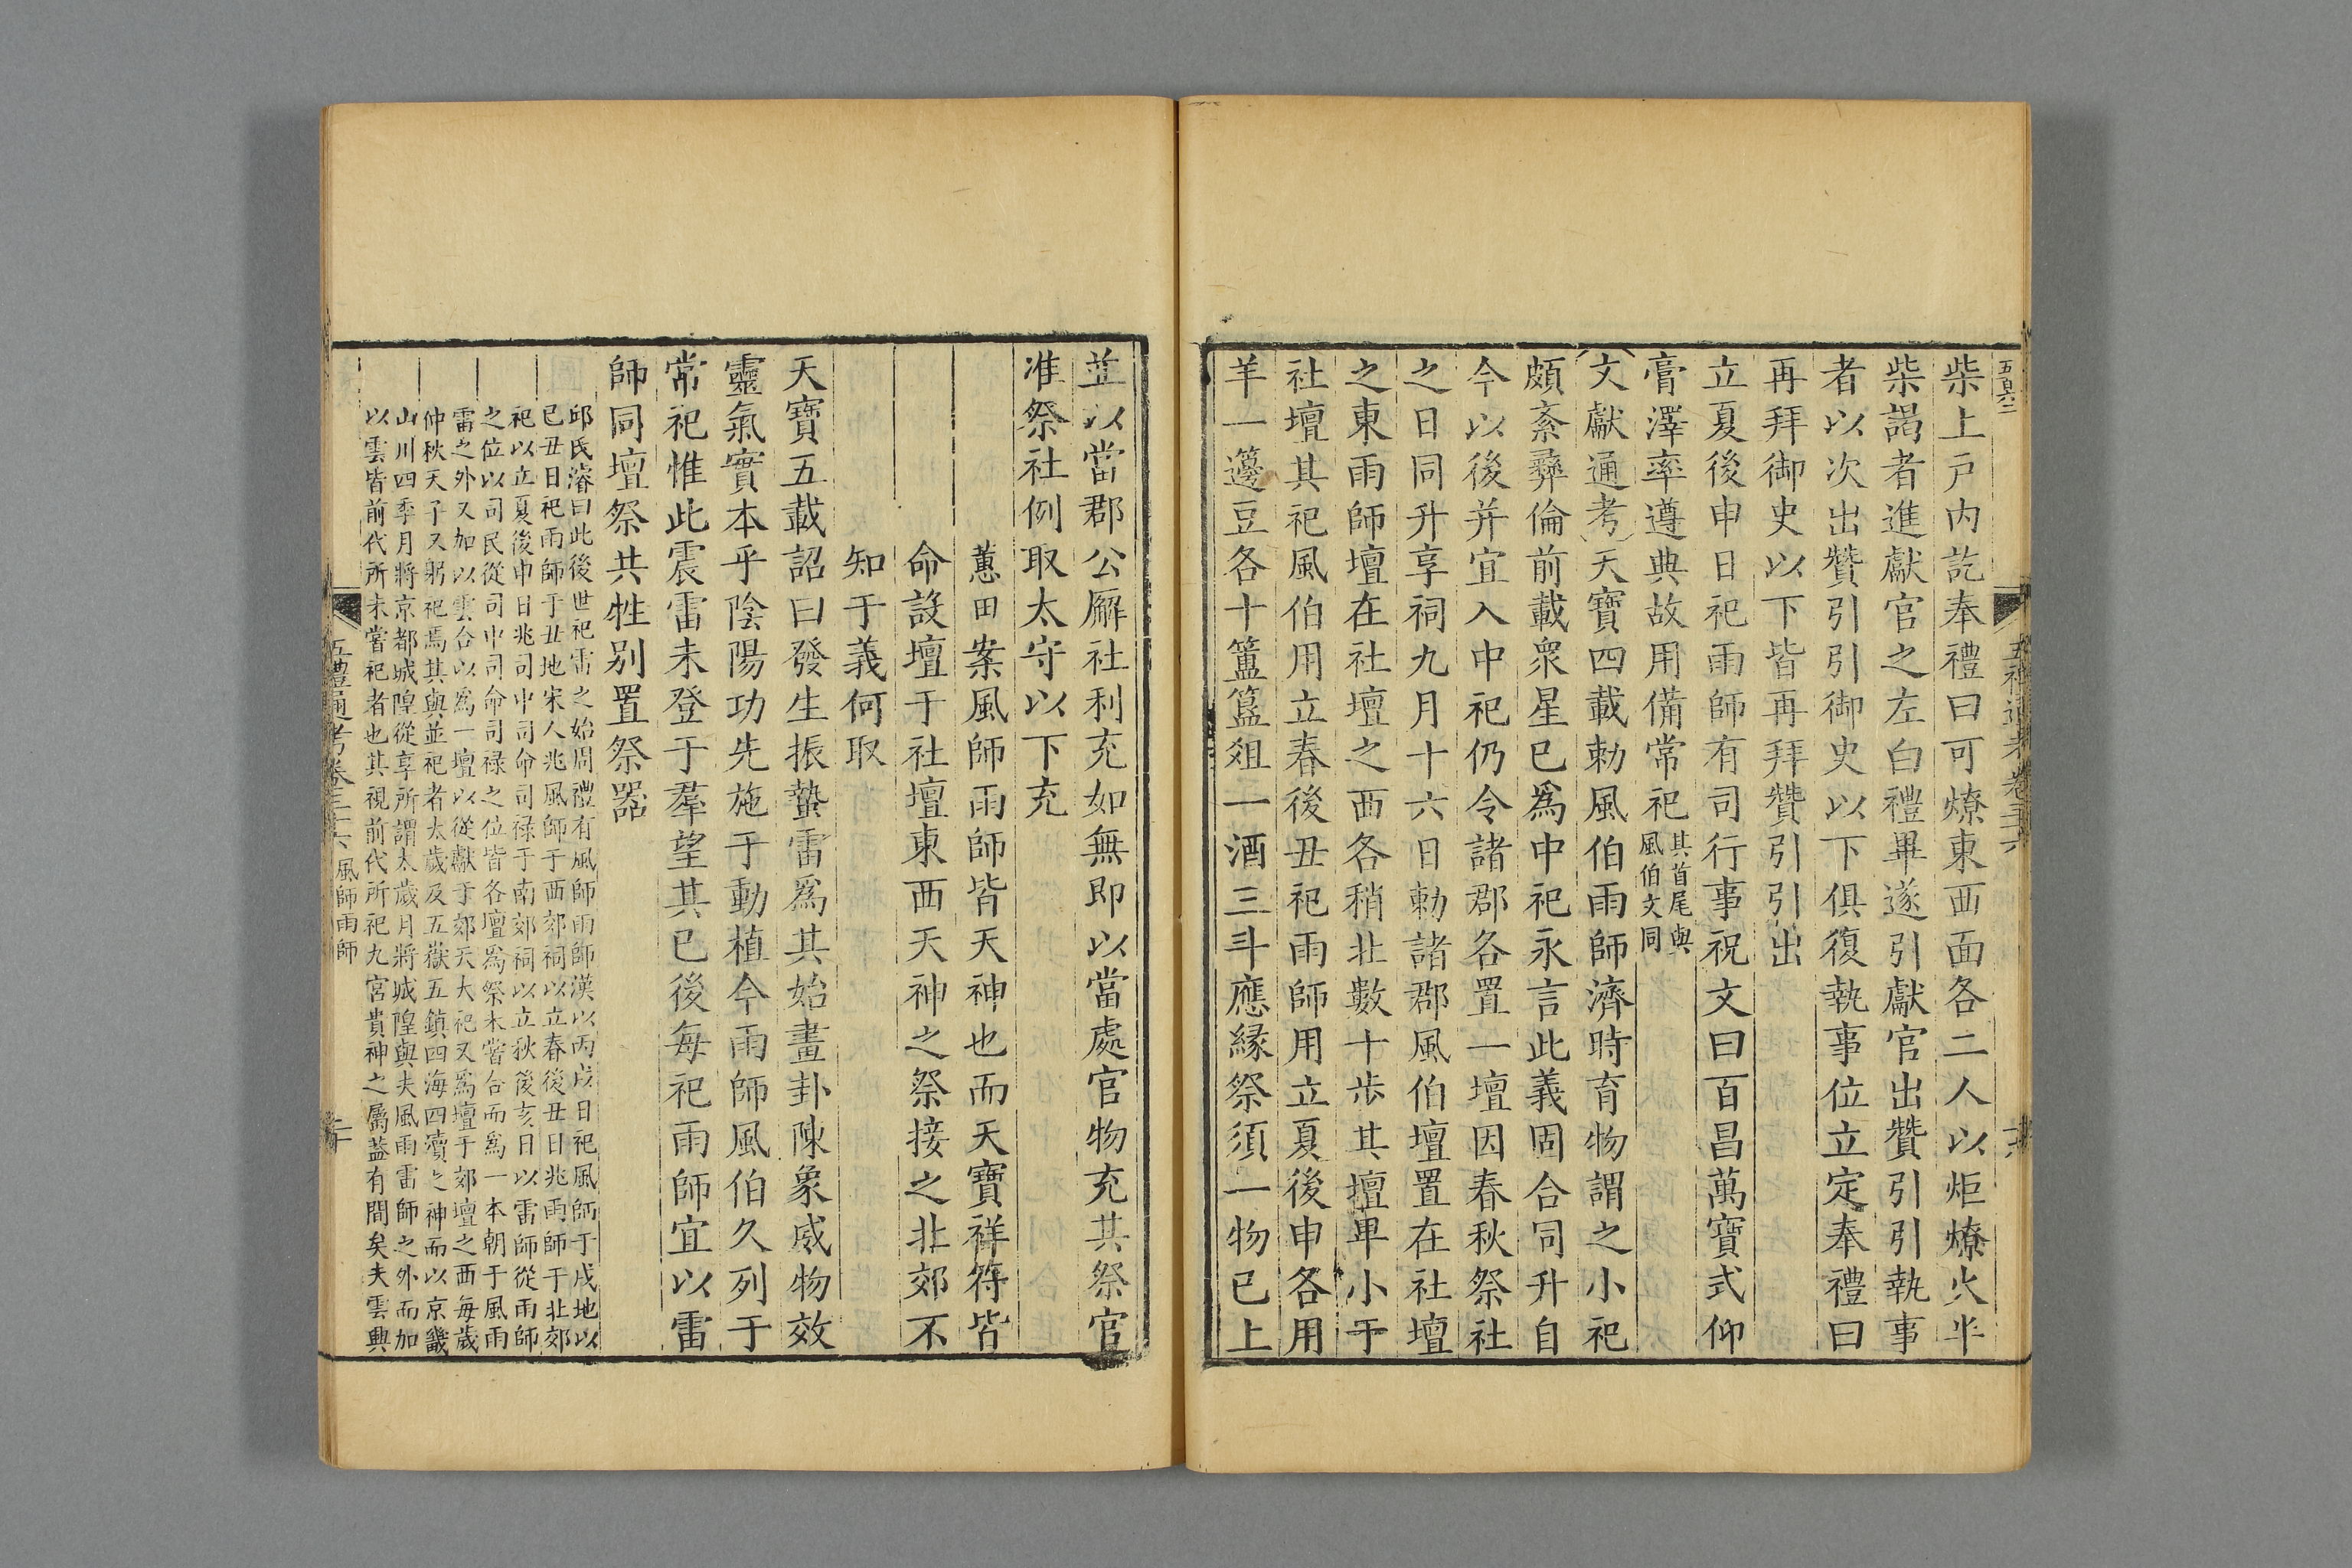 柴上戸内訖奉禮曰可燎東西面各二人以炬燎火半
柴謁者進獻官之左白禮畢遂引獻官出贊引引執事
者以次出贊引引御史以下俱復執事位立定奉禮曰
再拜御史以下皆再拜贊引引出
立夏後申日祀雨師有司行事祝文曰百昌萬寶式仰
膏澤率遵典故用備常祀其首尾與風伯文同
文獻通考天寶四載勅風伯雨師濟時育物謂之小祀
頗紊彛倫前載衆星已爲中祀永言此義固合同升自
今以後并宜入中祀仍令諸郡各置一壇因春秋祭社
之日同升享祠九月十六日勅諸郡風伯壇置在社壇
之東雨師壇在社壇之西各稍北數十步其壇卑小于
社壇其祀風伯用立春後丑祀雨師用立夏後申各用
羊一籩豆各十簠簋俎一酒三斗應縁祭須一物已上
並以當郡公廨社利充如無即以當處官物充其祭官
准祭社例取太守以下充
蕙田案風師雨師皆天神也而天寶祥符皆
命設壇于社壇東西天神之祭接之北郊不
知于義何取
天寶五載詔曰發生振蟄雷爲其始畫卦陳象威物效
靈氣實本乎陰陽功先施于動植今雨師風伯久列于
常祀惟此震雷未登于羣望其已後每祀雨師宜以雷
師同壇祭共牲别置祭器
邱氏濬曰此後世祀雷之始周禮有風師雨師漢以丙戌日祀風師于戌地以
已丑日祀雨師于丑地宋人兆風師于西郊祠以立春後丑日兆雨師于北郊
祀以立夏後申日兆司中司命司禄于南郊祠以立秋後亥日以雷師從雨師
之位以司民從司中司命司禄之位皆各壇爲祭未嘗合而爲一本朝于風雨
雷之外又加以雲合以爲一壇以從獻于郊天大祀又爲壇于郊壇之西每歲
仲秋天子又躬祀焉其與並祀者太歲及五嶽五鎮四海四瀆之神而以京畿
山川四季月將京都城隍從享所謂太歲月將城隍與夫風雨雷師之外而加
以雲皆前代所未嘗祀者也其視前代所祀九宮貴神之屬葢有間矣夫雲興
五禮通考卷三十六 風師雨師